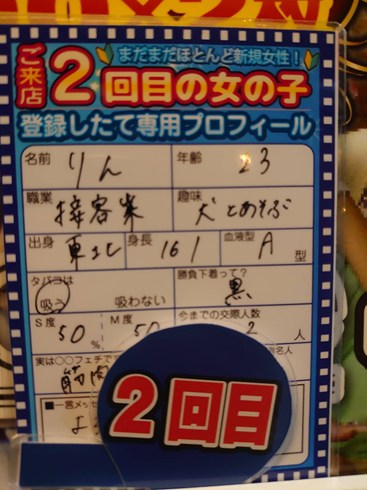 まだまだほとんど新規女性!
ご来店2回目の女の子
登録したて専用プロフィール
名前 りん 年齢 23
職業 接客業 趣味 犬とあそぶ
出身 東北 身長 161 血液型 A 型
タバコは 吸う 吸わない 勝負下着って? 黒
S度 50 % M度 50 今までの交際人数 2 人
実は○○フェチで 筋肉 名人
■一言メッセ
よ
2回目